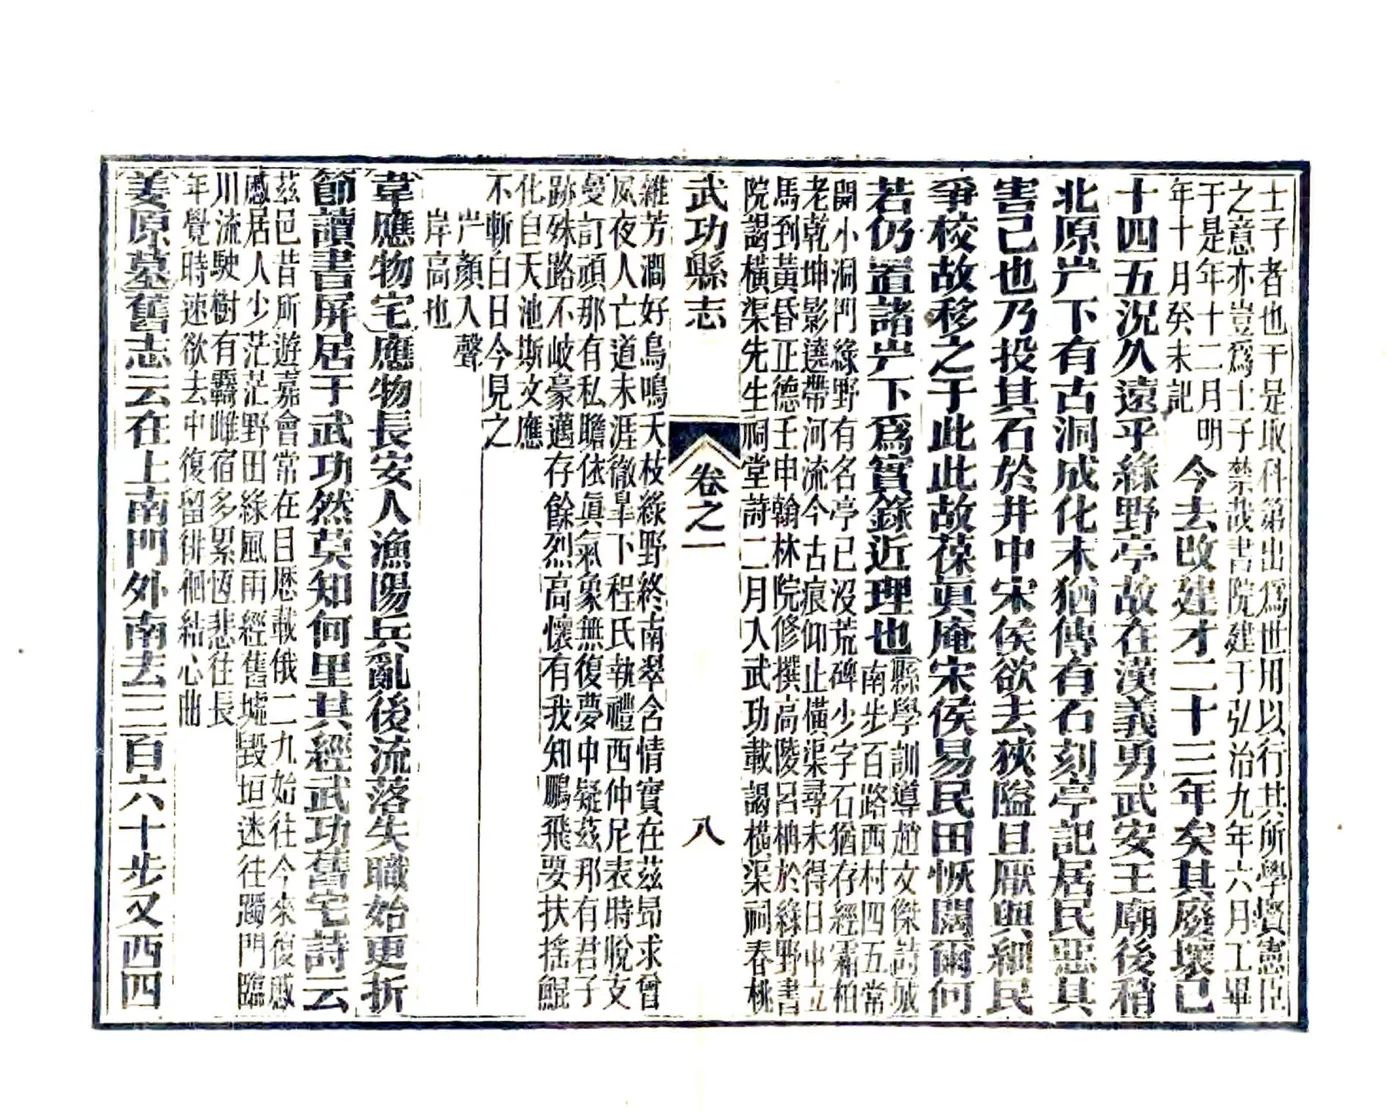 士子者也于是取科第出爲世用以行其所學實憲臣
之意亦豈爲士子禁哉書院建于弘治九年六月工畢
于是年十二月明
年十月癸未記
今去改建才二十三年矣其廢壞已
十四五況久遠乎綠野亭故在漢義勇武安王廟後稍
北原岸下有古洞成化末猶傳有石刻亭記居民惡其
害己也乃投其石於井中宋侯欲去狹隘且厭與細民
爭校故移之于此此故葆眞庵宋侯易民田恢闊爾何
若仍置諸岸下爲實錄近理也
縣學訓導趙文傑詩城
南步百路西村四五常
開小洞門綠野有名亭已没荒碑少字石猶存經霜柏
老乾坤影遶帶河流今古痕仰止橫渠尋未得日中立
馬到黃昏正德壬申翰林院修撰高陵呂柟於綠野書
院謁橫渠先生祠堂詩二月入武功載謁橫渠祠春桃
武功縣志
卷之一
八
維芳澗好鳥鳴天枝綠野終南翠含情實在茲昂求曾
夙夜人亡道未涯徹臯下程氏執禮西仲尼表時悅文
㚇訂頑那有私瞻依眞氣象無復夢中疑茲那有君子
跡殊路不岐豪邁存餘烈高懷有我知鵬飛要扶搖鯤
化自天池斯文應
不慚白日今見之
岸顏入聲
岸高也
韋應物宅應物長安人漁陽兵亂後流落失職始更折
節讀書屏居于武功然莫知何里其經武功舊宅詩云
茲邑昔所遊嘉會常在目歷載俄二九始往今來復慼
慼居人少茫茫野田綠風雨經舊墟毀垣迷往躅門臨
川流駛樹有羈雌宿多累恆悲往長
年覺時速欲去中復留徘徊結心曲
姜原墓舊志云在上南門外南去三百六十步又西四